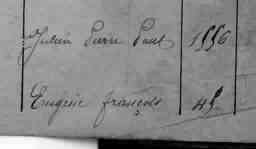 Julien Pierre Paul 1886
Eugène françois